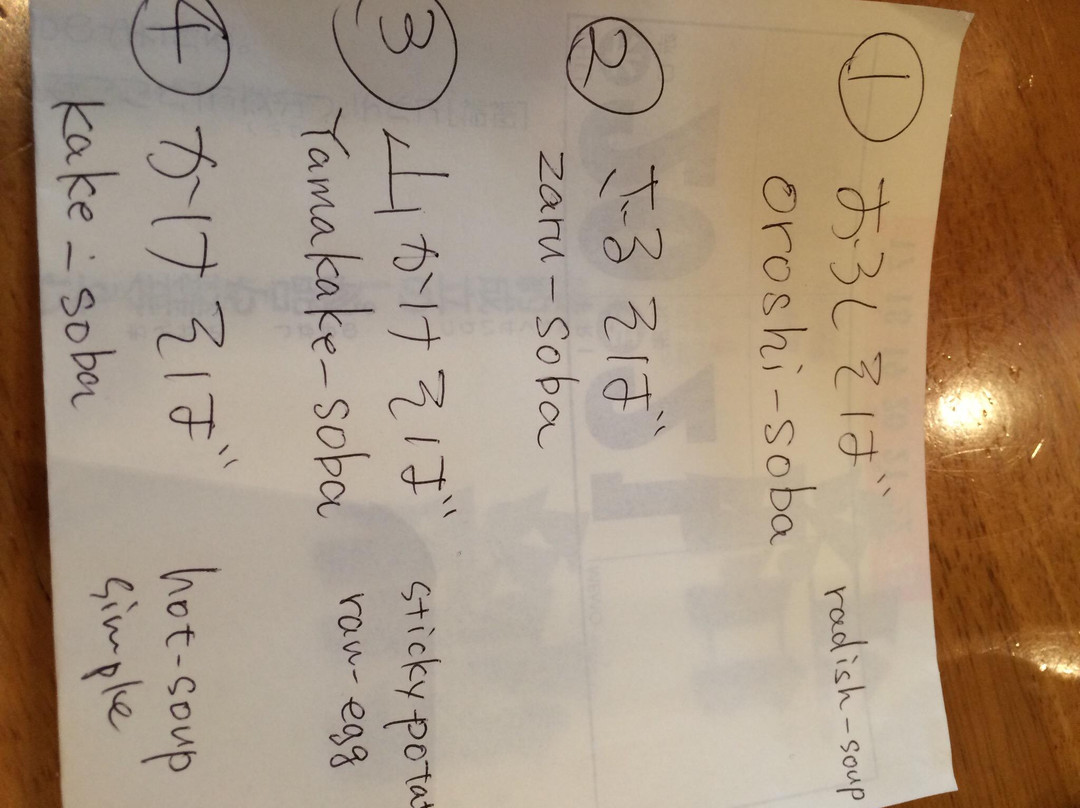 ① おろしそば
oroshi-soba radish-soup
② ざるそば
zaru-soba
③ 山かけそば sticky potat
Yamakake-soba raw-egg
④ かけそば hot-soup
kake-soba simple